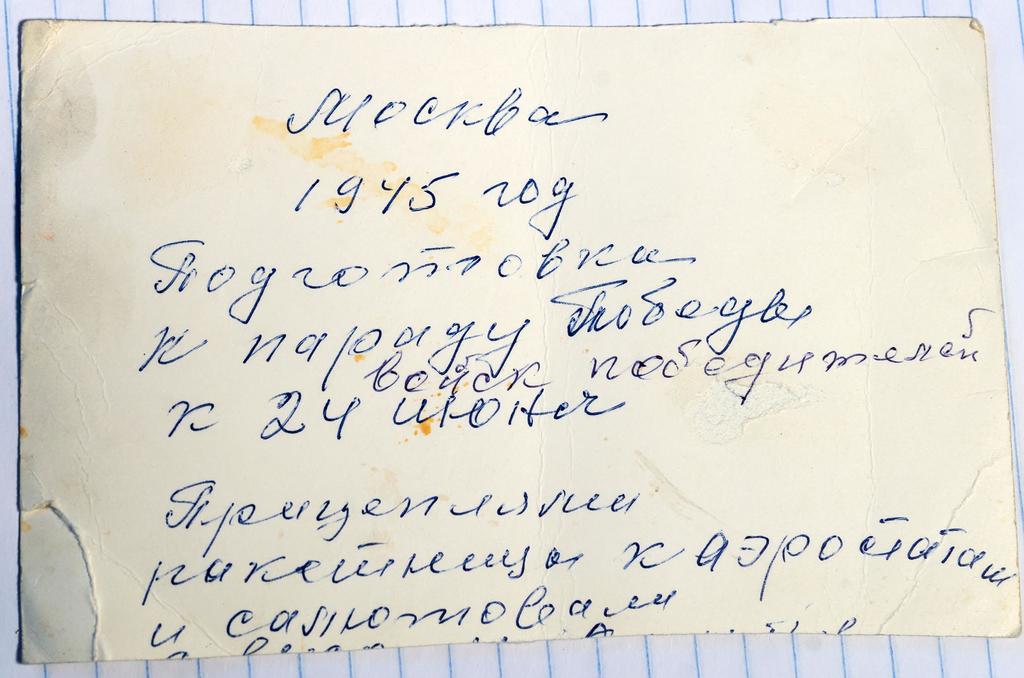 Москва
1945 год
Подготовка
к параду Победы
войск победителей
к 24 июня
Прицепляли
ракетницы к аэростатам
и салютовали